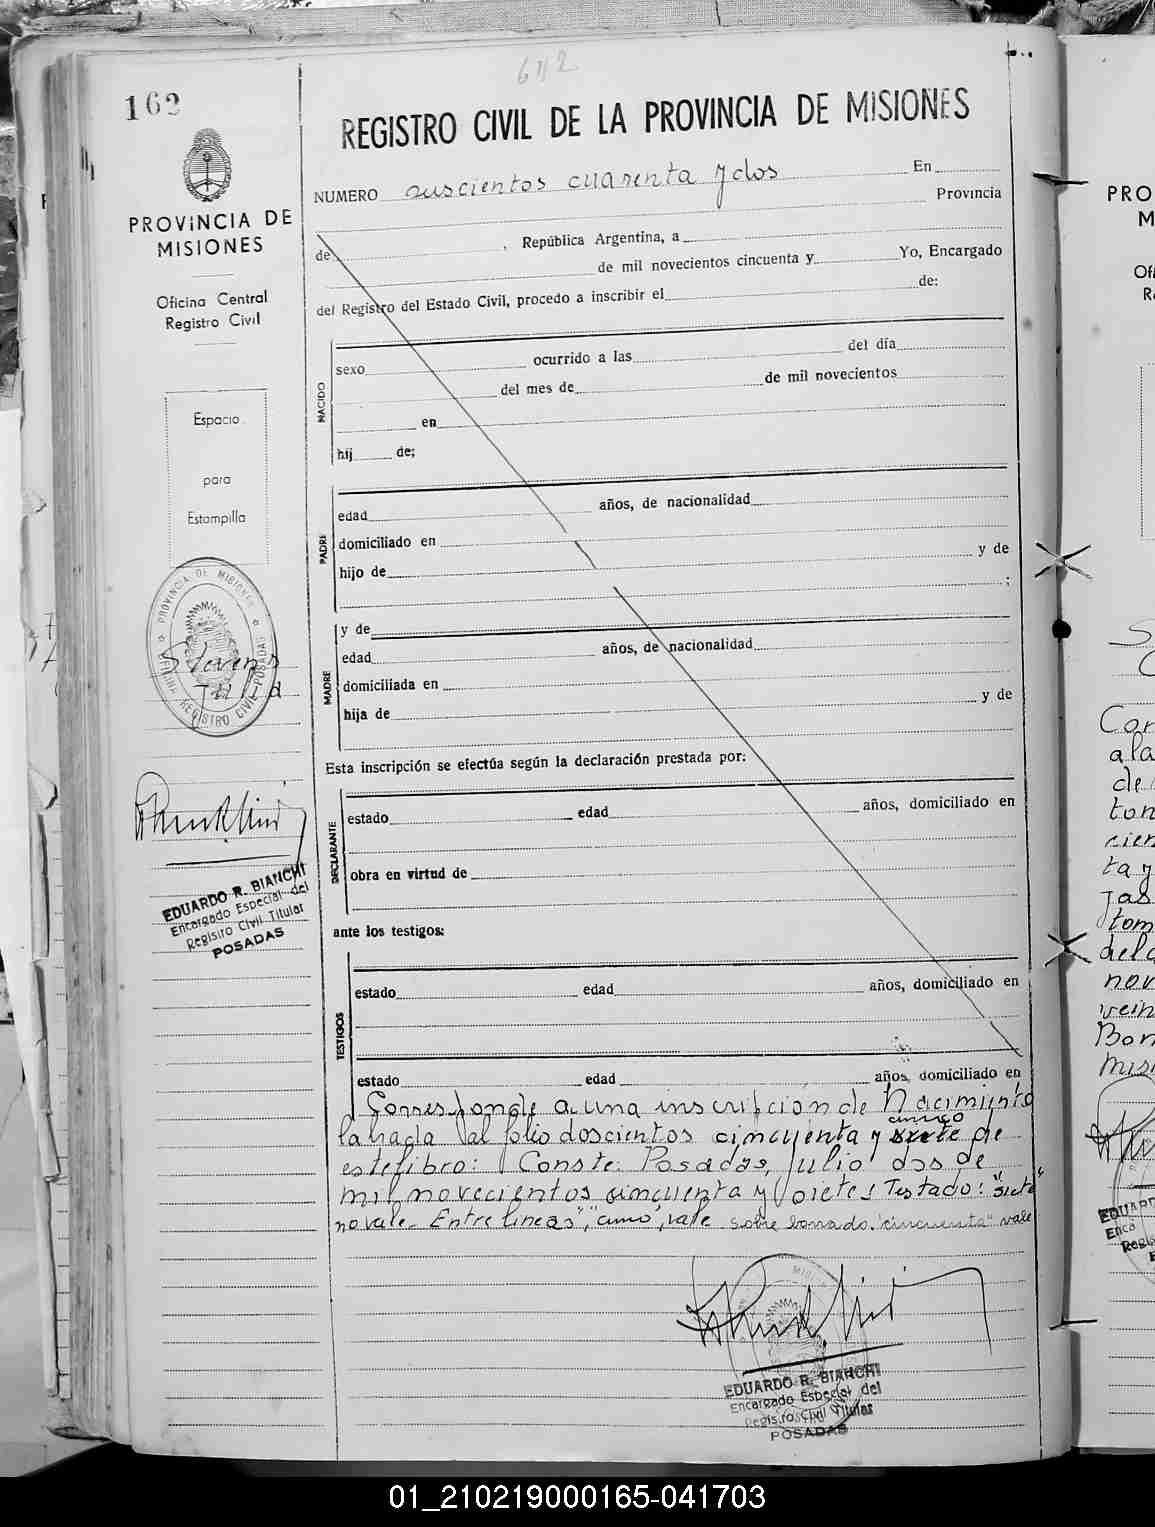 162
642
REGISTRO CIVIL DE LA PROVINCIA DE MISIONES
PROVINCIA DE
MISIONES
Oficina Central
Registro Civil
Espacio
para
Estampilla
PROVINCIA DE MISIONES
REGISTRO CIVIL POSADAS
EDUARDO R. BIANCHI
Encargado Especial del
Registro Civil Titular
POSADAS
NUMERO suscientos cuarenta y dos En
Provincia
de , República Argentina, a
de mil novecientos cincuenta y Yo, Encargado
del Registro del Estado Civil, procedo a inscribir el de:
NACIDO
sexo ocurrido a las del día
del mes de de mil novecientos
en
hij de;
PADRE
edad años, de nacionalidad
domiciliado en
hijo de y de
;
MADRE
y de
edad años, de nacionalidad
domiciliada en
hija de y de
Esta inscripción se efectúa según la declaración prestada por:
DECLARANTE
estado edad años, domiciliado en
obra en virtud de
ante los testigos:
TESTIGOS
estado edad años, domiciliado en
estado edad años, domiciliado en
Corresponde a una inscripción de Nacimiento
labrada al folio doscientos cincuenta y siete cinco de
este libro: Conste. Posadas, Julio dos de
mil novecientos cincuenta y siete: Testado: "siete"
no vale. Entre lineas, "cinco", vale sobre borrado. "cincuenta" vale
EDUARDO R. BIANCHI
Encargado Especial del
Registro Civil Titular
POSADAS
PRO
M
Ofi
Re
Cor
a la
de
ton
cien
ta y
jas
tom
del a
nov
vein
Bon
misi
EDUARD
Enca
Regis
01_210219000165-041703